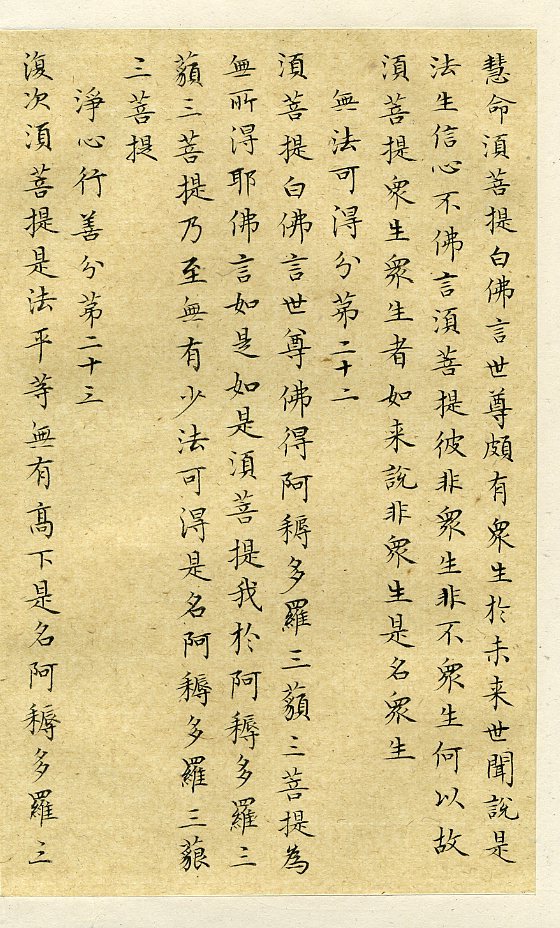 慧命須菩提白佛言世尊頗有眾生於未来世聞說是
法生信心不佛言須菩提彼非眾生非不眾生何以故
須菩提眾生眾生者如来說非眾生是名眾生
無法可得分苐二十二
須菩提白佛言世尊佛得阿耨多羅三藐三菩提為
無所得耶佛言如是如是須菩提我於阿耨多羅三
藐三菩提乃至無有少法可得是名阿耨多羅三藐
三菩提
淨心行善分苐二十三
復次須菩提是法平等無有髙下是名阿耨多羅三